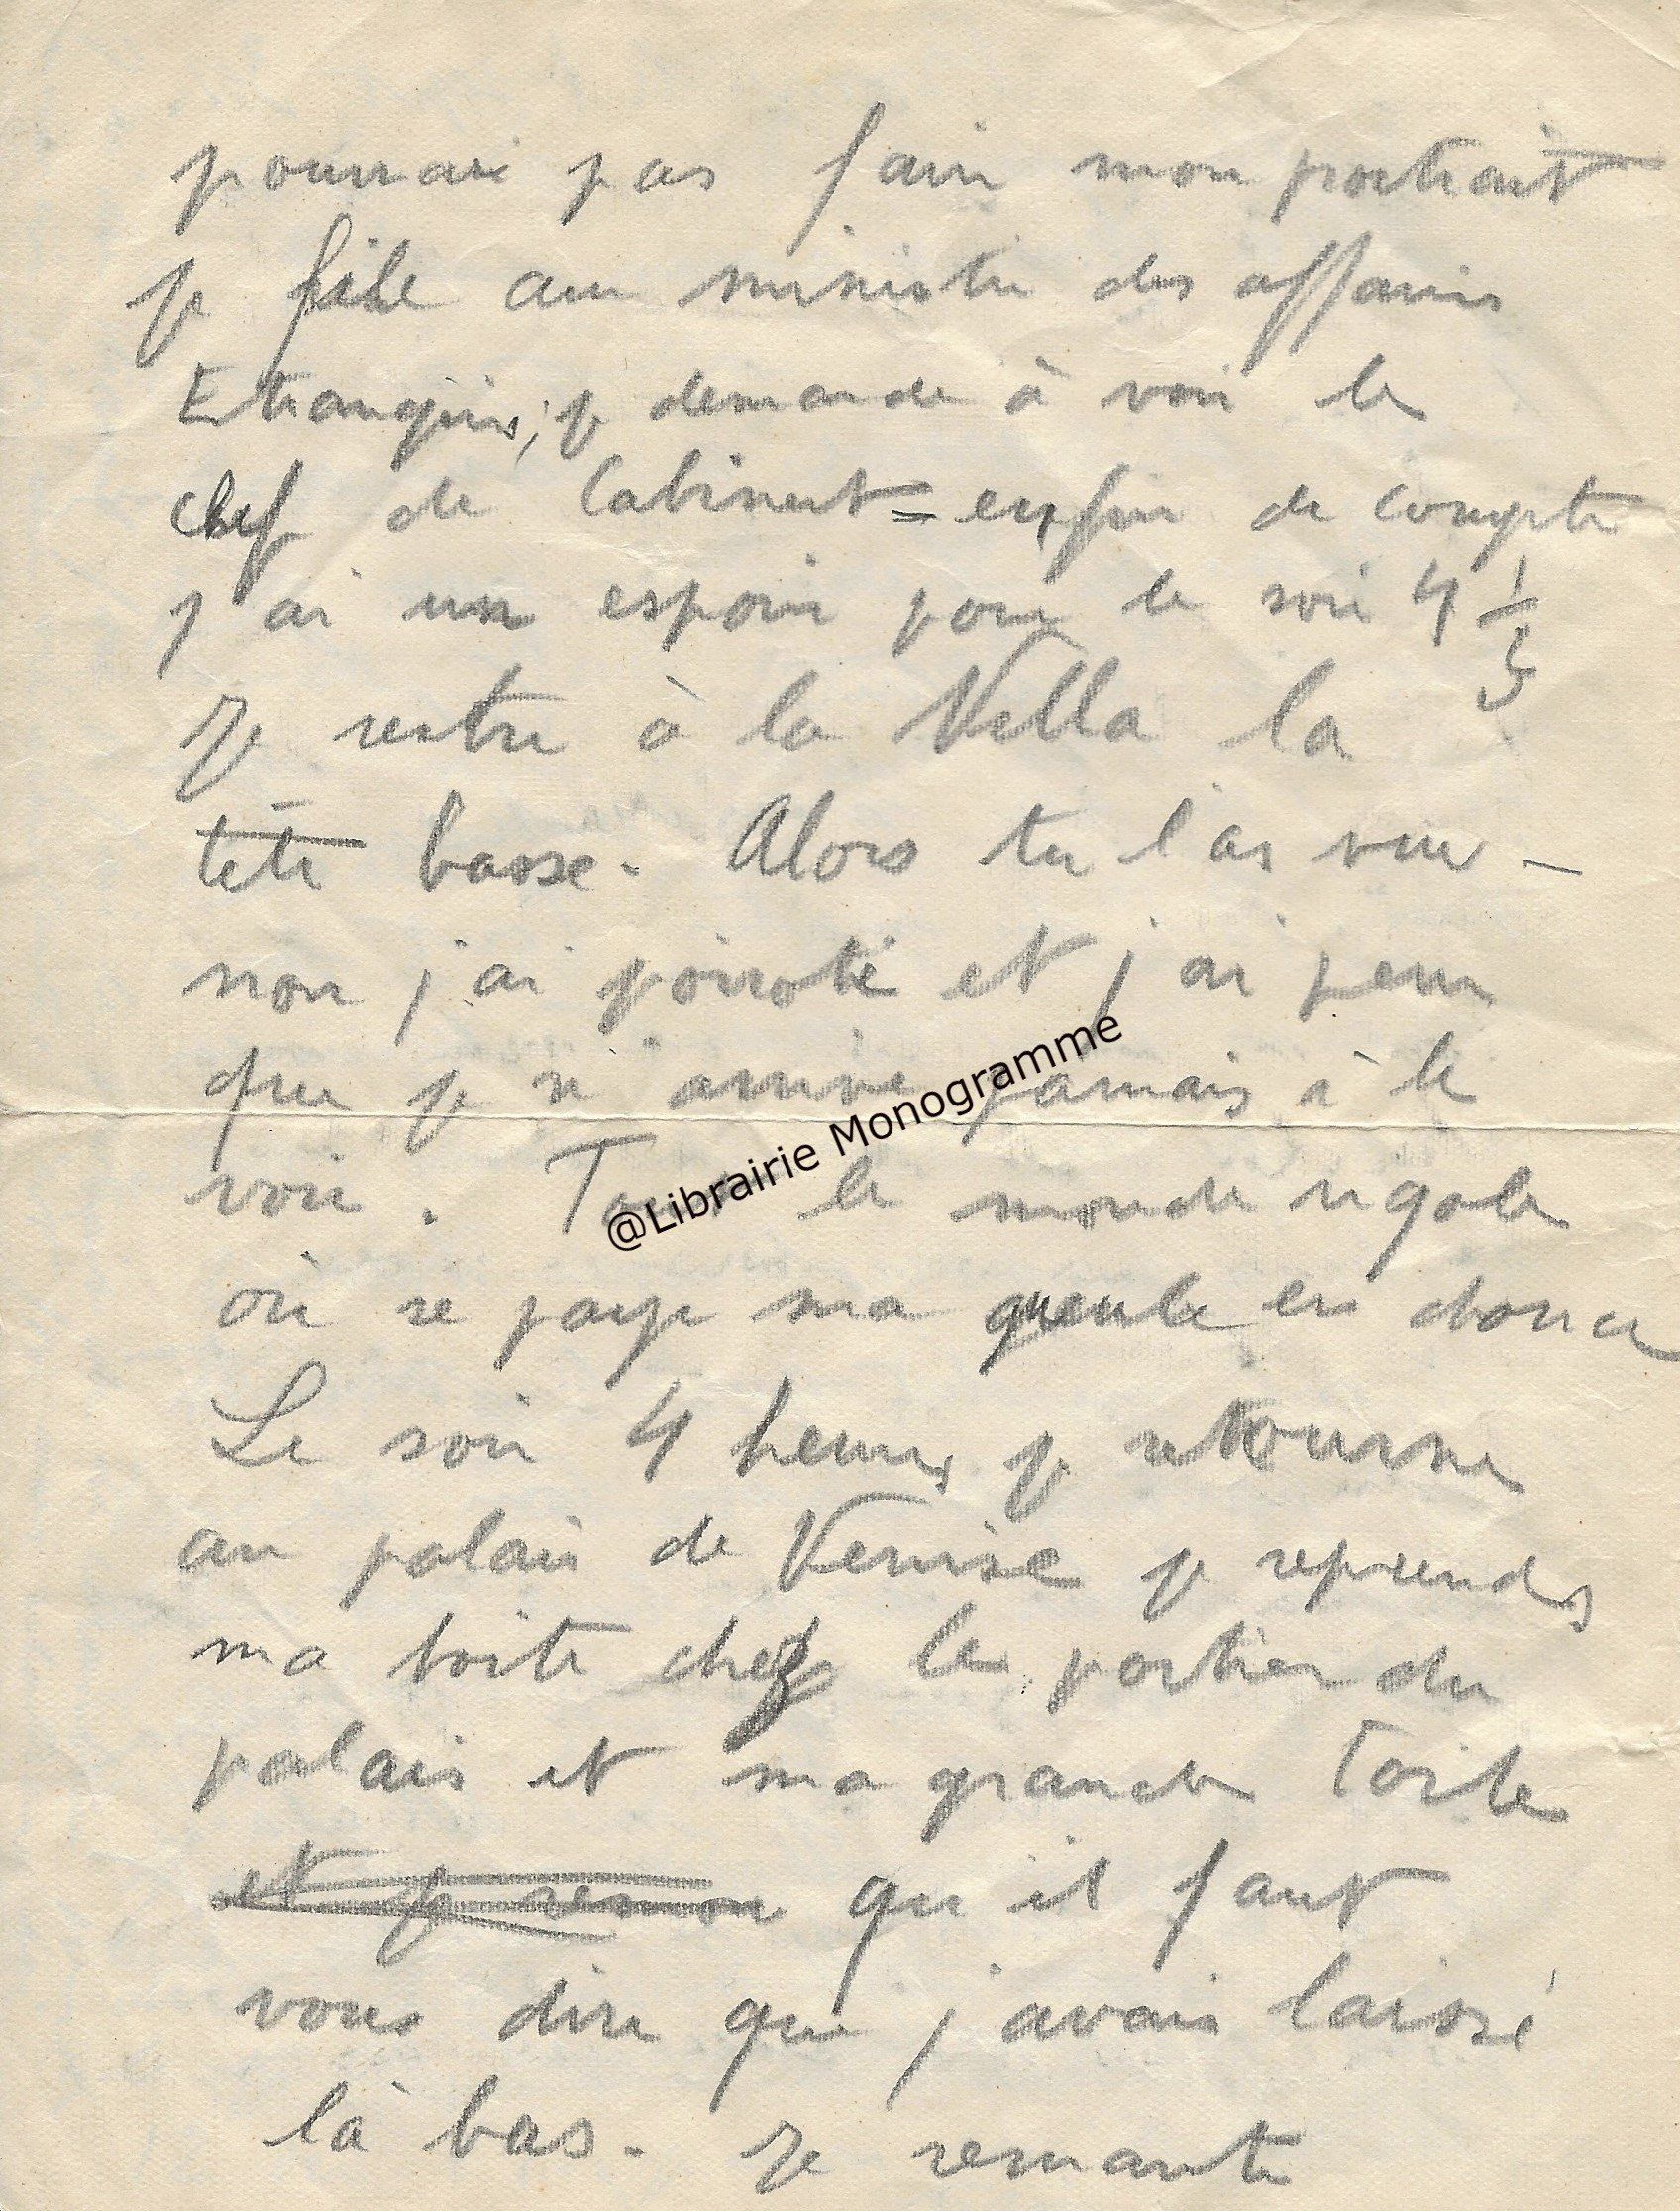 pourrai pas faire mon portrait
je file au ministère des affaires
Etrangères, je demande à voir le
chef de Cabinet = enfin de compte
j'ai un espoir pour le soir 4 1/2
Je rentre à la Villa la
tête basse. Alors tu l'as vu –
non j'ai poiroté et j'ai peur
que je n'arrive jamais à le
voir. Tout le monde rigole
où se paye ma gueule en douce
Le soir 4 heures je retourne
au palais de Venise je reprends
ma boite chez le portier du
palais et ma grande Toile
et je qu'il faut
vous dire que j'avais laissé
là bas. Je remonte
@Librairie Monogramme